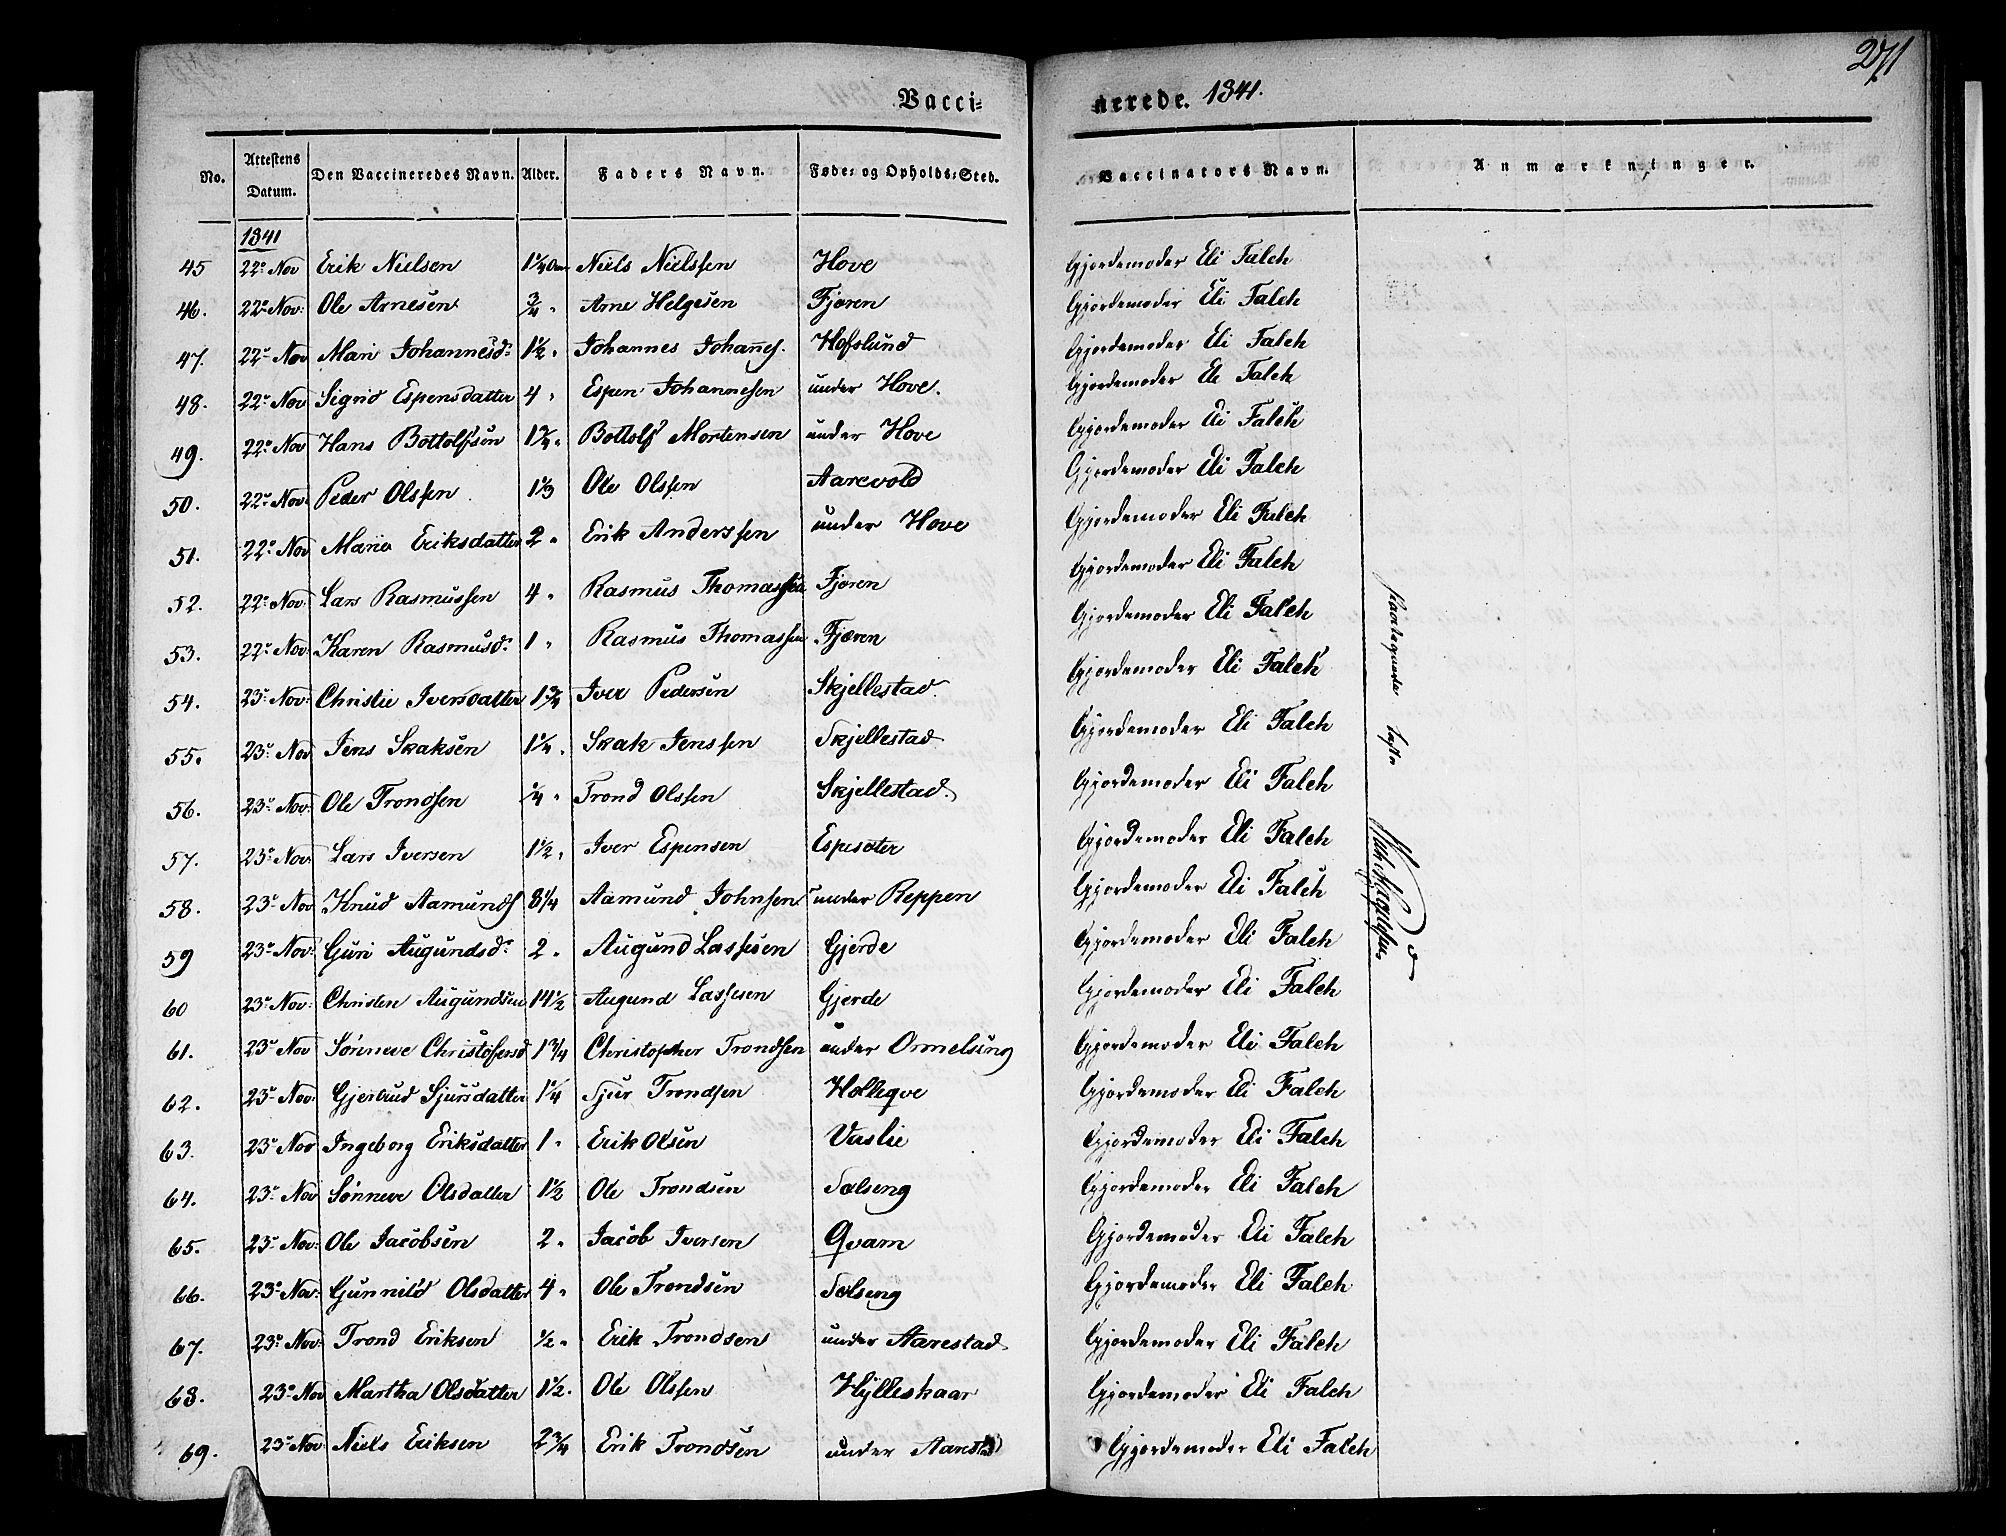 271
Vaccinerede. 1841.
No. Attestens Datum. Den Vaccineredes Navn. Alder. Faders Navn. Føde- og Opholds-Sted. Vaccinators Navn. Anmærkninger.
1841
45 22de Nov Erik Nielsen 1¼ Niels Nielssen Hove Gjordemoder Eli Falch
46. 22de Nov: Ole Arnesen ¾ " Arne Helgesen Fjæren Gjordemoder Eli Falch
47. 22de Nov Mari Johannesd: 1½ " Johannes Johannes. Hofslund Gjordemoder Eli Falch
48. 22de Nov Sigrid Espensdatter 4 " Espen Johannesen under Hove. Gjordemoder Eli Falch
49. 22de Nov Hans Bottolfsen Bottolf Mortensen under Hove Gjordemoder Eli Falch
50. 22de Nov: Peder Olssen 1⅓ Ole Olssen Aarevold Gjordemoder Eli Falch
51. 22de Nov Marie Eriksdatter 2 " Erik Anderssen under Hove Gjordemoder Eli Falch
52. 22de Nov: Lars Rasmussen 4 " Rasmus Thomassen Fjæren Gjordemoder Eli Falch
53. 22de Nov: Karen Rasmusd: 1 " Rasmus Thomassen Fjæren Gjordemoder Eli Falch
54. 23de Nov: Christie Iversdatter 1¾ Iver Pedersen Skjellestad. Gjordemoder Eli Falch
55. 23de Nov Jens Skaksen 1¼ " Skak Jenssen Skjellestad Gjordemoder Eli Falch
56. 23de Nov: Ole Trondsen ¼ " Trond Olssen Skjellestad. Gjordemoder Eli Falch
57. 23de Nov: Lars Iversen 1½ " Iver Espensen Espesæter Gjordemoder Eli Falch
58. 23de Nov Knud Aamunds 8¼ Aamund Johnsen under Reppen Gjordemoder Eli Falch
59 23de Nov: Guri Augundsd: 2 " Augund Lassesen Gjerde Gjordemoder Eli Falch
60 23de Nov: Christen Augundsen 14½ Augund Lassesen Gjerde Gjordemoder Eli Falch
61. 23de Nov Sønneve Christofersd 1¾ Christopher Trondsen under Ormelsing Gjordemoder Eli Falch
62. 23de Nov: Gjertrud Sjursdatter 1¼ Sjur Trondsen Holleqve Gjordemoder Eli Falch
63. 23de Nov Ingeborg Eriksdatter 1 " Erik Olsen Vaslie Gjordemoder Eli Falch
64. 23de Nov Sønneve Olsdatter 1½ Ole Trondsen Sælseng Gjordemoder Eli Falch
65. 23de Nov: Ole Jacobsen 2 " Jacob Iversen Qvam Gjordemoder Eli Falch
66. 23de Nov: Gunnild Olsdatter 4 " Ole Trondsen Sælseng Gjordemoder Eli Falch
67. 23de Nov: Trond Eriksen ½ " Erik Trondsen under Aarestad Gjordemoder Eli Falch
68. 23de Nov Martha Olsdatter 1½ " Ole Olssen Hylleskaar Gjordemoder Eli Falch
69. 23de Nov Niels Eriksen 2¾ Erik Trondsen under Aarestad Gjordemoder Eli Falch